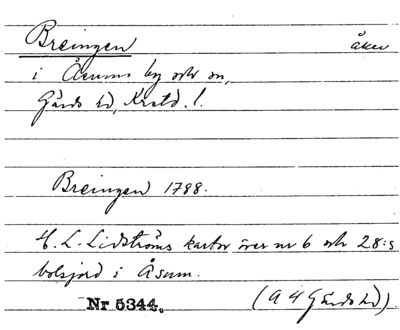 Breingen åker
i Åsums by och sn,
Gärds hd, Krstd. l.
Breingen 1788.
H. L. Lidströms kartor över nr 6 och 28:s
bolsjord i Åsum.
Nr 5344. (A 4 Gärds hd)